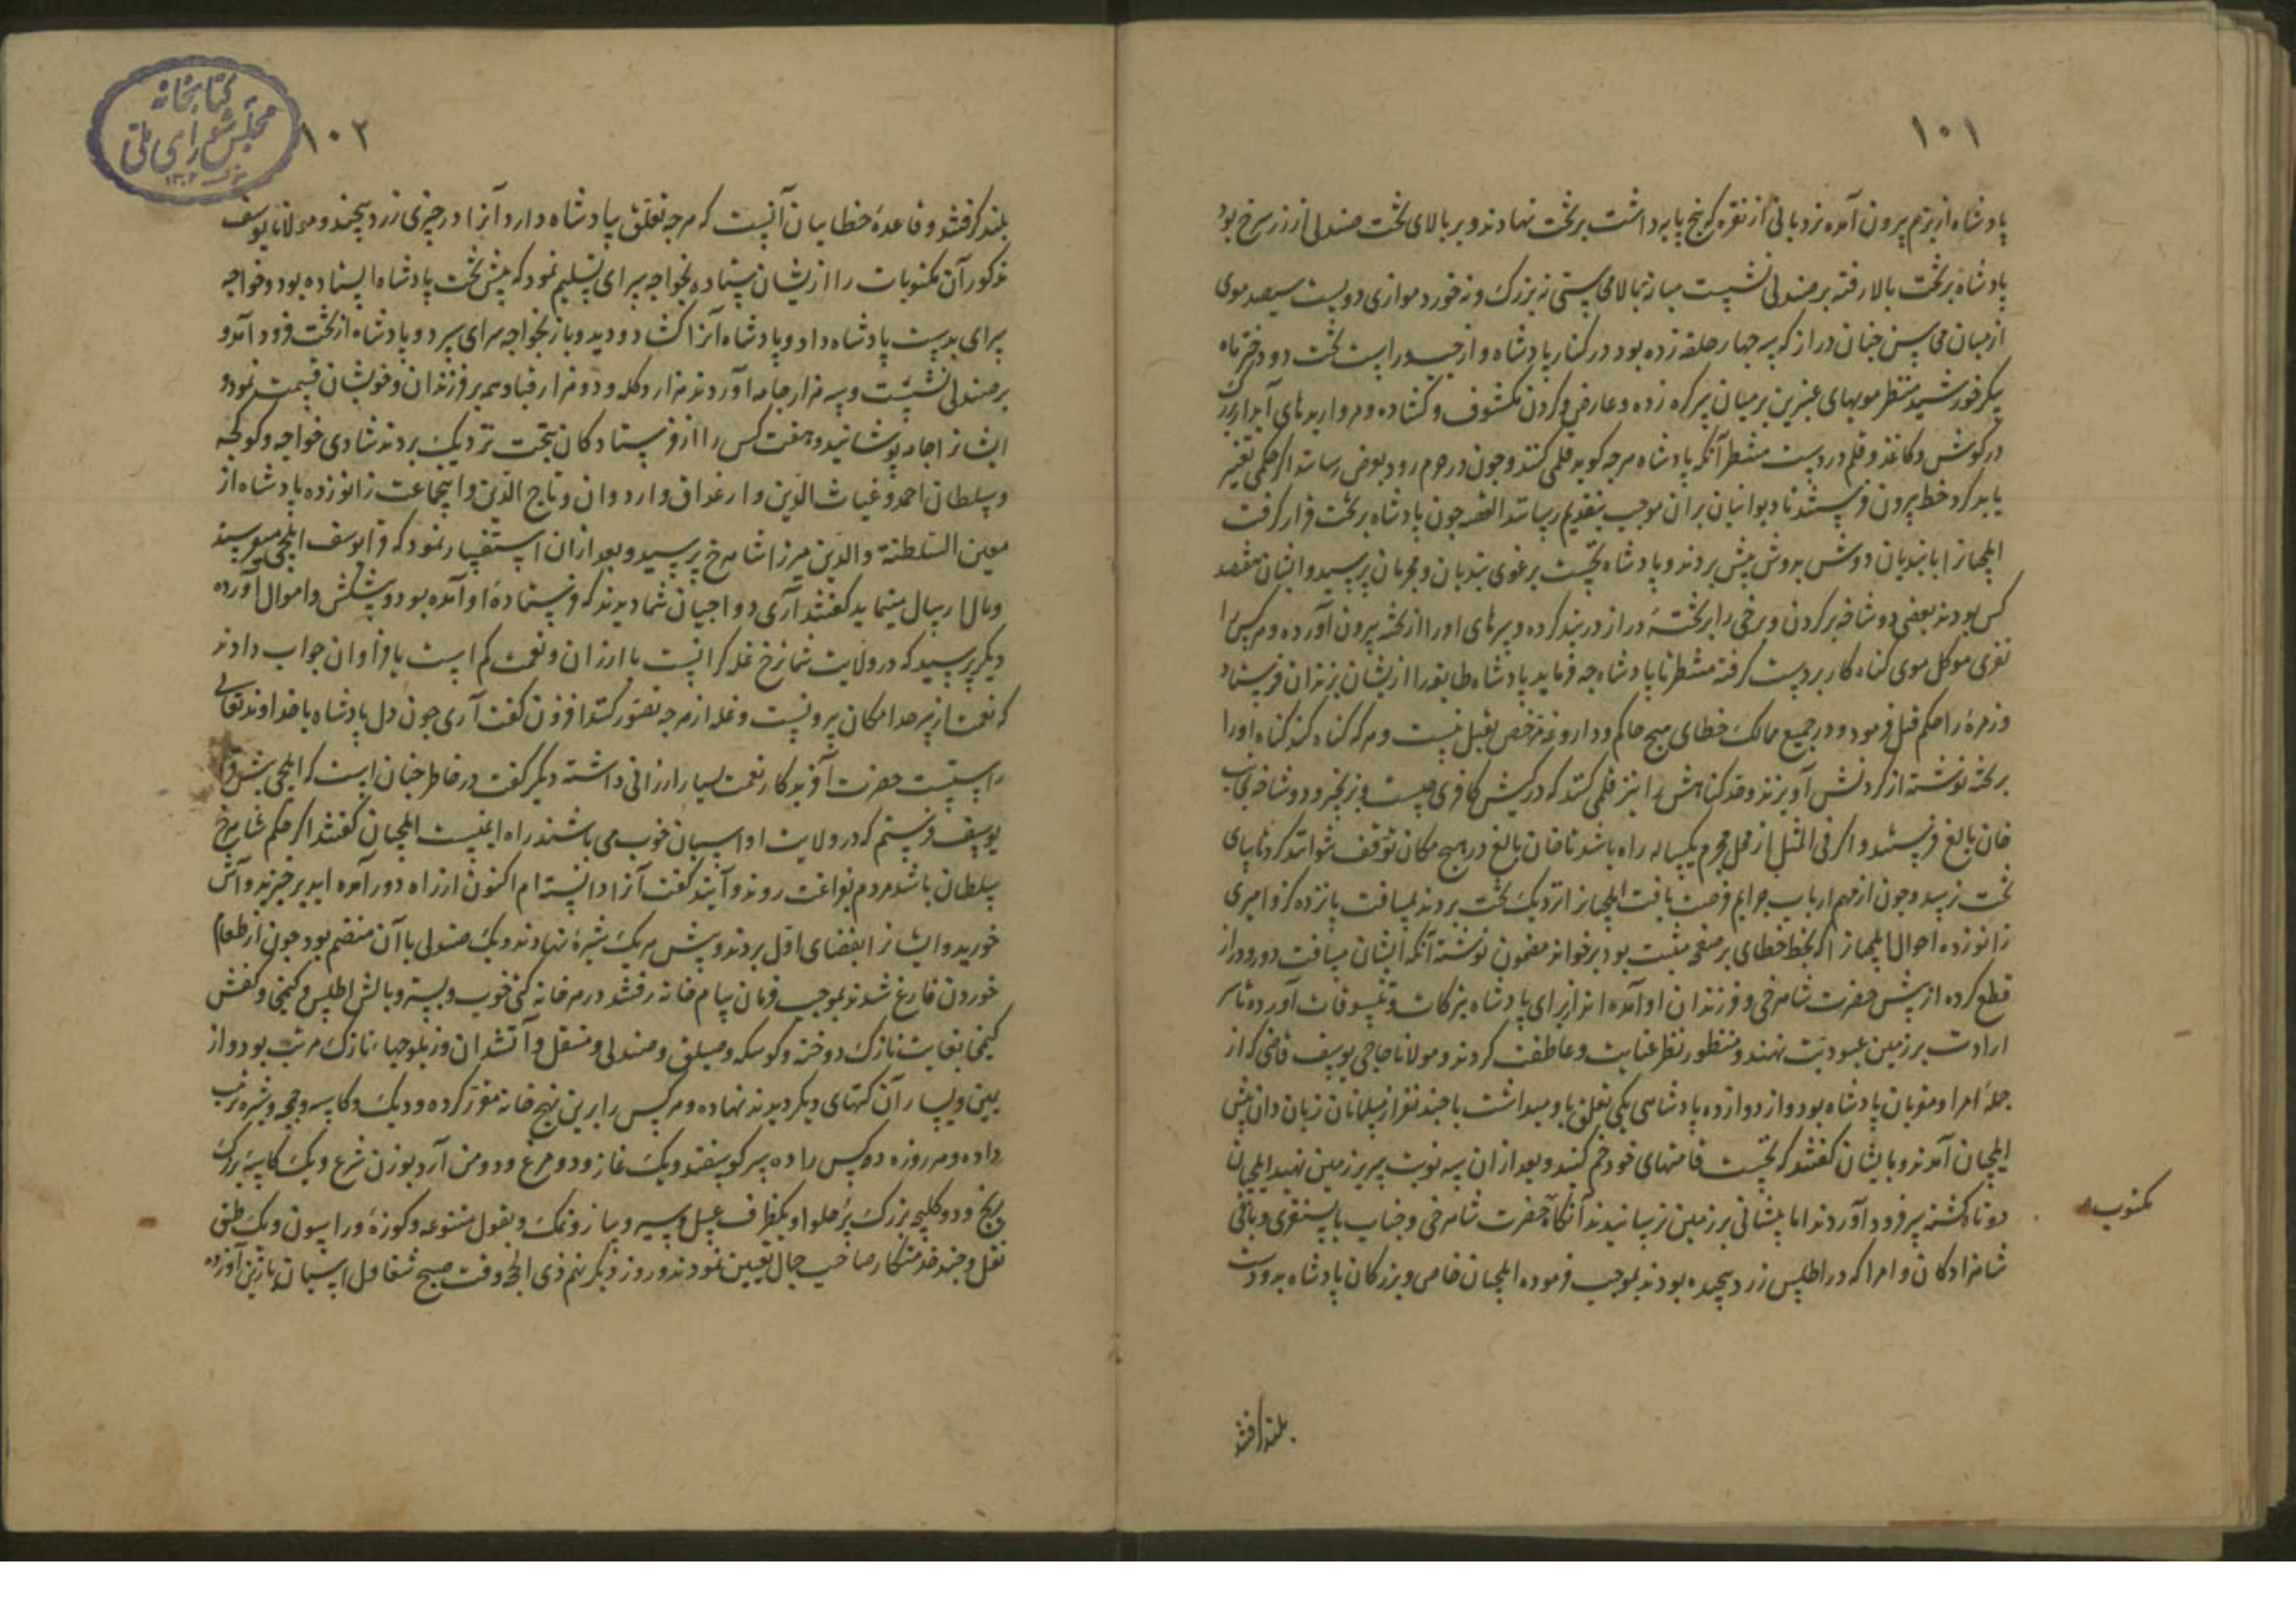 ۱۰۱
پادشاه از بزم بیرون آمده نردبانی از نقره که پنج پایه داشت بر تخت نهادند و بر بالای تخت صندلی از زر سرخ بود
پادشاه بر تخت بالا رفته بر صندلی نشست میانه بالا محاسنی نه بزرک و نه خورد موازی دویست سیصد موی
از میان محاسن چنان دراز که سه چهار حلقه زده بود در کنار پادشاه و از چپ و راست تخت دو دختر ماه
پیکر خورشید منظر مویهای عنبرین بر میان سر کره زده و عارض و کردن مکشوف و کشاده و مرواریدهای آبدار بزرک
در کوش و کاغذ و قلم در دست منتظر آنکه پادشاه هرچه کوید قلمی کنند و چون در حرم رود بعرض رسانند اکر حکمی تغییر
باید کرد خط بیرون فرستند تا دیوانیان بران موجب بتقدیم رسانند القصه چون پادشاه بر تخت قرار کرفت
ایلچیانرا با بندیان دوش بدوش پیش بردند و پادشاه نخست یرغوی بندیان و مجرمان پرسید و ایشان هفتصد
کس بودند بعضی دو شاخه بر کردن و برخی را بر تختهٔ دراز در بند کرده و سرهای او را از تخته بیرون آورده و هر کس را
نفری موکل موی کناه کار بر دست کرفته منتظر تا پادشاه چه فرماید پادشاه طایفه را از ایشان بزندان فرستاد
و زمرهٔ را حکم قتل فرمود و در جمیع ممالک خطای هیچ حاکم و داروغه مرخص بقتل نیست و هر که کناه کند کناه او را
بر تخته نوشته از کردنش آویزند و حد کناهش را نیز قلمی کنند که در کیش کافری چیست و بزنجیر و دو شاخه بجانب
خان بالیغ فرستند و اکر فی المثل از محل مجرم یکساله راه باشد تا خان بالیغ در هیچ مکان توقف نتوانند کرد تا بپای
تخت رسید و چون از مهم ارباب جرایم فرصت یافت ایلچیانرا نزدیک تخت بردند بمسافت پانزده کز و امیری
زانو زده احوال ایلچیانرا که بخط خطای بر صفحه مثبت بود برخواند مضمون نوشته آنکه ایشان مسافت دور و دراز
قطع کرده از پیش حضرت شاهرخی و فرزندان او آمده اند از برای پادشاه تبرکات و تنسوقات آورده تا سر
ارادت بر زمین عبودیت نهند و منظور نظر عنایت و عاطفت کردند و مولانا حاجی یوسف قاضی که از
جملهٔ امرا و مقربان پادشاه بود و از دوازده پادشاهی یکی تعلق باو میداشت با چند نفر از مسلمانان زبان دان پیش
ایلچیان آمدند و بایشان کفتند که نخست قامتهای خود خم کنید و بعد از ان سه نوبت سر بر زمین نهید ایلچیان
دوتاه کشته سر فرود آوردند اما پیشانی بر زمین نرسانیدند آنکاه حضرت شاهرخی و جناب بایسنغری و باقی
مکتوب
شاهزادکان و امرا که در اطلس زرد پیچیده بودند بموجب فرموده ایلچیان خاص و بزرکان پادشاه بدو دست
بلند کرفتند
۱۰۲
کتابخانه
مجلس شورای ملی
بلند کرفتند و قاعدهٔ خطاییان آنست که هرچه تعلق بپادشاه دارد آنرا در چیزی زرد پیچند و مولانا یوسف
مذکور آن مکتوبات را از ایشان ستاده بخواجه سرای تسلیم نمود که پیش تخت پادشاه ایستاده بود و خواجه
سرای بدست پادشاه داد و پادشاه آنرا کشاد و دید و باز بخواجه سرای سپرد و پادشاه از تخت فرود آمد و
بر صندلی نشست و سه هزار جامه آوردند هزار دکله و دو هزار قبا و همه بر فرزندان و خویشان قسمت نمود و
ایشانرا جامه پوشانید و هفت کس را از فرستادکان بتخت نزدیک بردند شادی خواجه و کوکچه
و سلطان احمد و غیاث الدین و ارغداق و اردوان و تاج الدین و اینجماعت زانو زده پادشاه از
معین السلطنة والدین میرزا شاهرخ پرسید و بعد از ان استفسار نمود که قرایوسف ایلچی میفرستد
و مال ارسال مینماید کفتند آری دواجیان شما دیدند که فرستادهٔ او آمده بود و پیشکش و اموال آورده
دیکر پرسید که در ولایت شما نرخ غله کرانست یا ارزان و نعمت کم است یا فراوان جواب دادند
که نعمت از سرحد امکان بیرونست و غله از هرچه تصور کنند افزون کفت آری چون دل پادشاه با خداوند تعالی
راستست حضرت آفریدکار نعمت بسیار ارزانی داشته دیکر کفت در خاطر چنان است که ایلچی پیش قرا
یوسف فرستم که در ولایت او اسبان خوب می باشند راه ایمنست ایلچیان کفتند اکر حکم شاهرخ
سلطان باشد مردم بفراغت روند و آیند کفت آنرا دانسته ام اکنون از راه دور آمده اید برخیزید و آش
خورید و ایشانرا بفضای اول بردند و پیش هر یک شیرهٔ نهادند و یک صندلی با آن منضم بود چون از طعام
خوردن فارغ شدند بموجب فرمان بیام خانه رفتند در هر خانه کتی خوب و بستر و بالش اطلس و کمخا و کفش
کمخا بغایت نازک دوخته و کوسکه و مسلق و صندلی و منقل و آتشدان و زیلوچهاء نازک مرتب بود و از
یمین و یسار آن کتهای دیکر دیدند نهاده و هر کس را برین نهج خانه مقرر کرده و دیک و کاسه و چمچه و شیره ترتیب
داده و هر روزه ده کس را ده سر کوسفند و یک غاز و دو مرغ و دو من آرد بوزن شرع و یک کاسهٔ بزرک
برنج و دو کلیچه بزرک پر حلوا و یکظرف عسل و سیر و پیاز و نمک و بقول متنوعه و کوزهٔ دراسون و یک طبق
نقل و چند خدمتکار صاحب جمال تعیین نمودند و روز دیکر نهم ذی الحجه وقت صبح شغاول اسبان با زین آورده